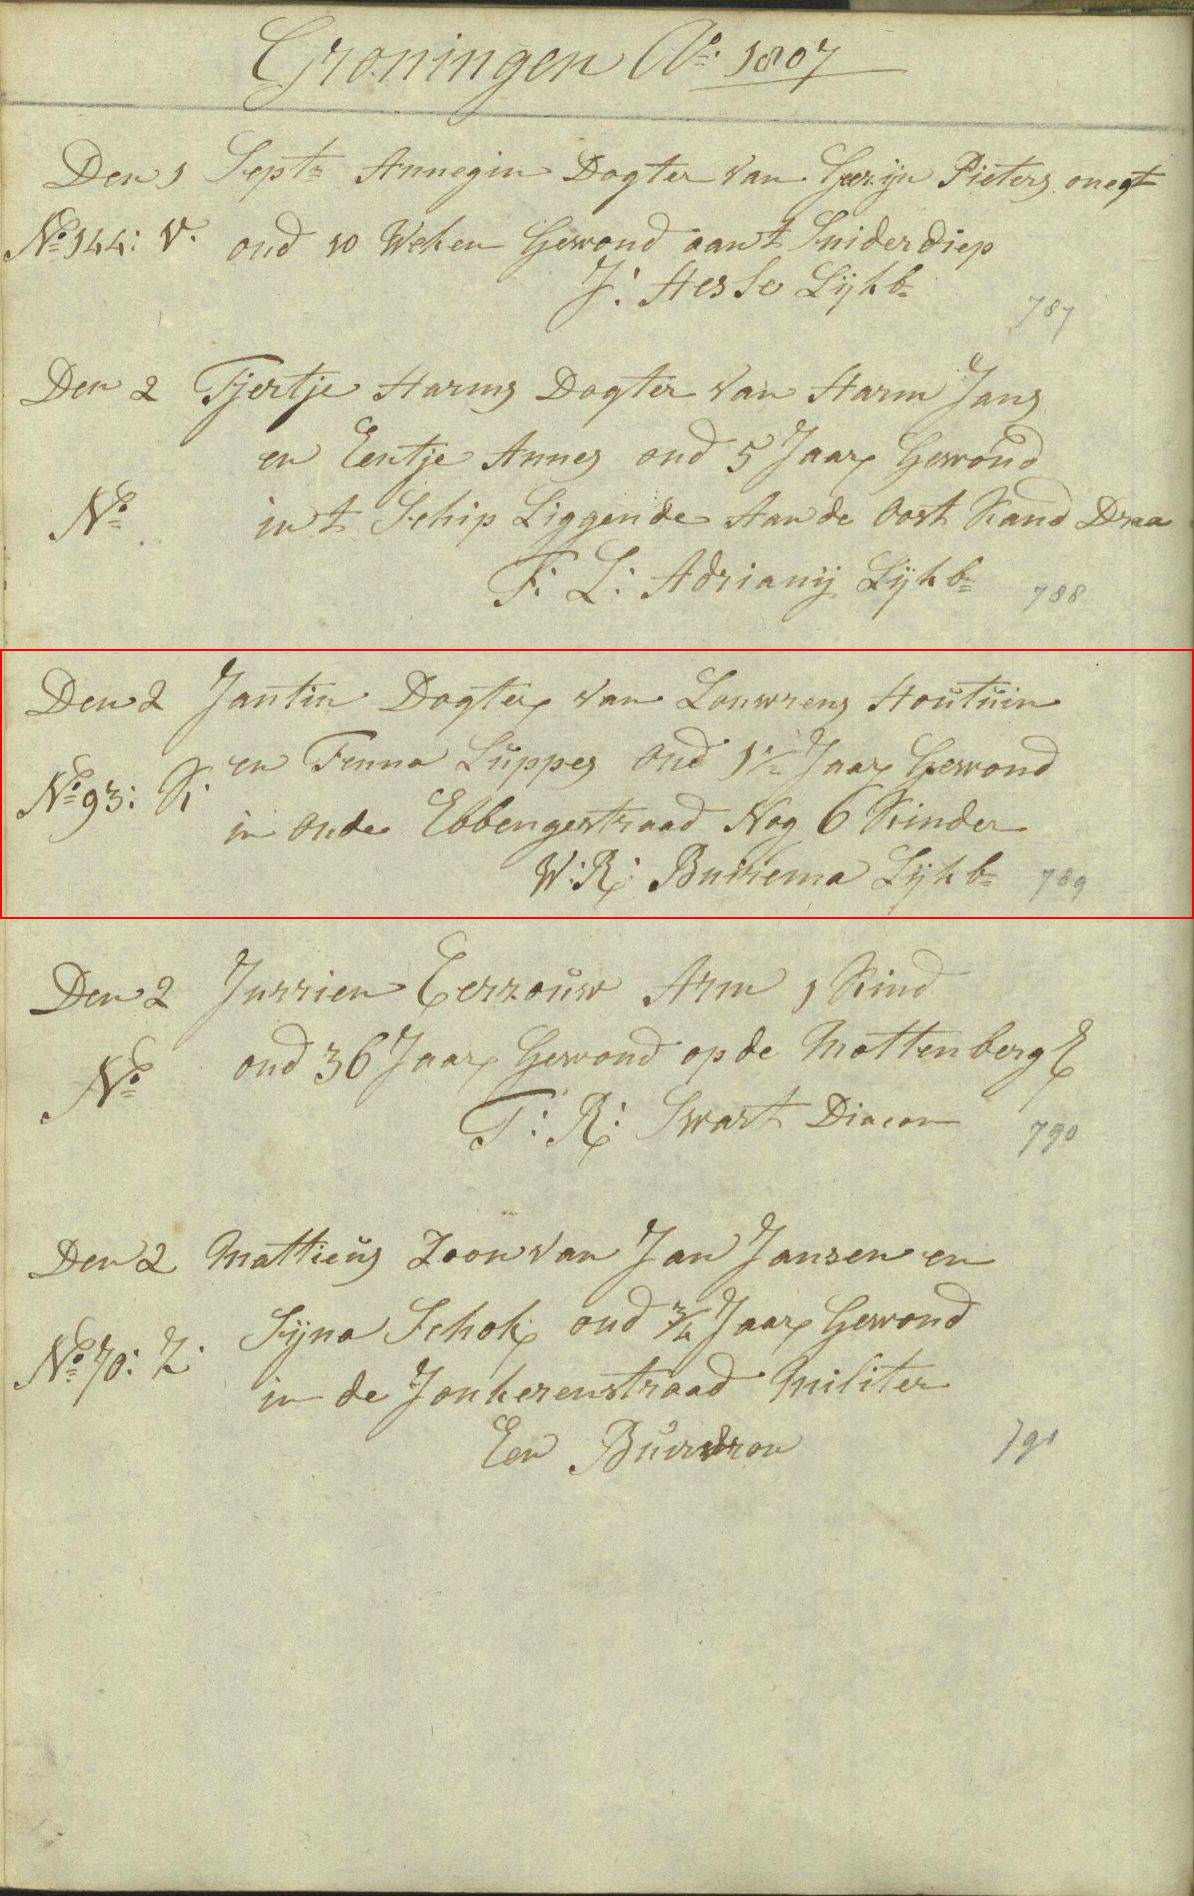 Groningen Ao. 1807
Den 1 Septr Annegin Dogter van Geezijn Pieters onegt
No 144: V. oud 10 Weken Gewond aan t Suiderdiep
J: Hesse Lijkb
787
Den 2 Tjertje Harms Dogter van Harm Jans
en Eentje Annes oud 5 Jaar Gewond
No in t Schip Liggende Aan de Oost Kand Draa
F: L: Adrianij Lijkb 788
Den 2 Jantin Dogter van Louwrens Houtuin
No 93: K: en Fenna Luppes oud 1 1/2 Jaar Gewond
in oude Ebbengestraad Nog 6 Kinder
W: R: Buirema Lijkb 789
Den 2 Jurrien Eerzouw Arm 1 Kind
No oud 36 Jaar Gewond op de Mottenberg E
T: R: Swart Diacon 790
Den 2 Mattieus Zoon van Jan Jansen en
No 70: Z: Sijna Schok oud 3/4 Jaar Gewond
in de Jonkerenstraad Militer
Een Buirvrou 791